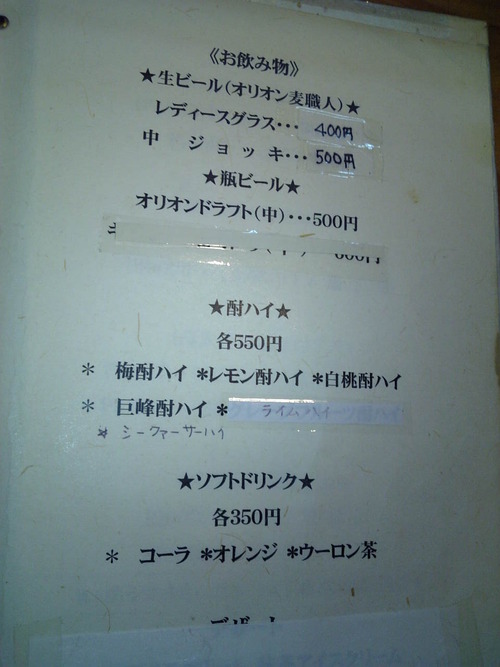 《お飲み物》
★生ビール(オリオン麦職人)★
レディースグラス・・・ 400円
中 ジョッキ・・・ 500円
★瓶ビール★
オリオンドラフト(中)・・・500円
600円
★酎ハイ★
各550円
＊ 梅酎ハイ ＊レモン酎ハイ ＊白桃酎ハイ
＊ 巨峰酎ハイ ＊ ライムハイ
＊ シークァーサーハイ
★ソフトドリンク★
各350円
＊ コーラ ＊オレンジ ＊ウーロン茶